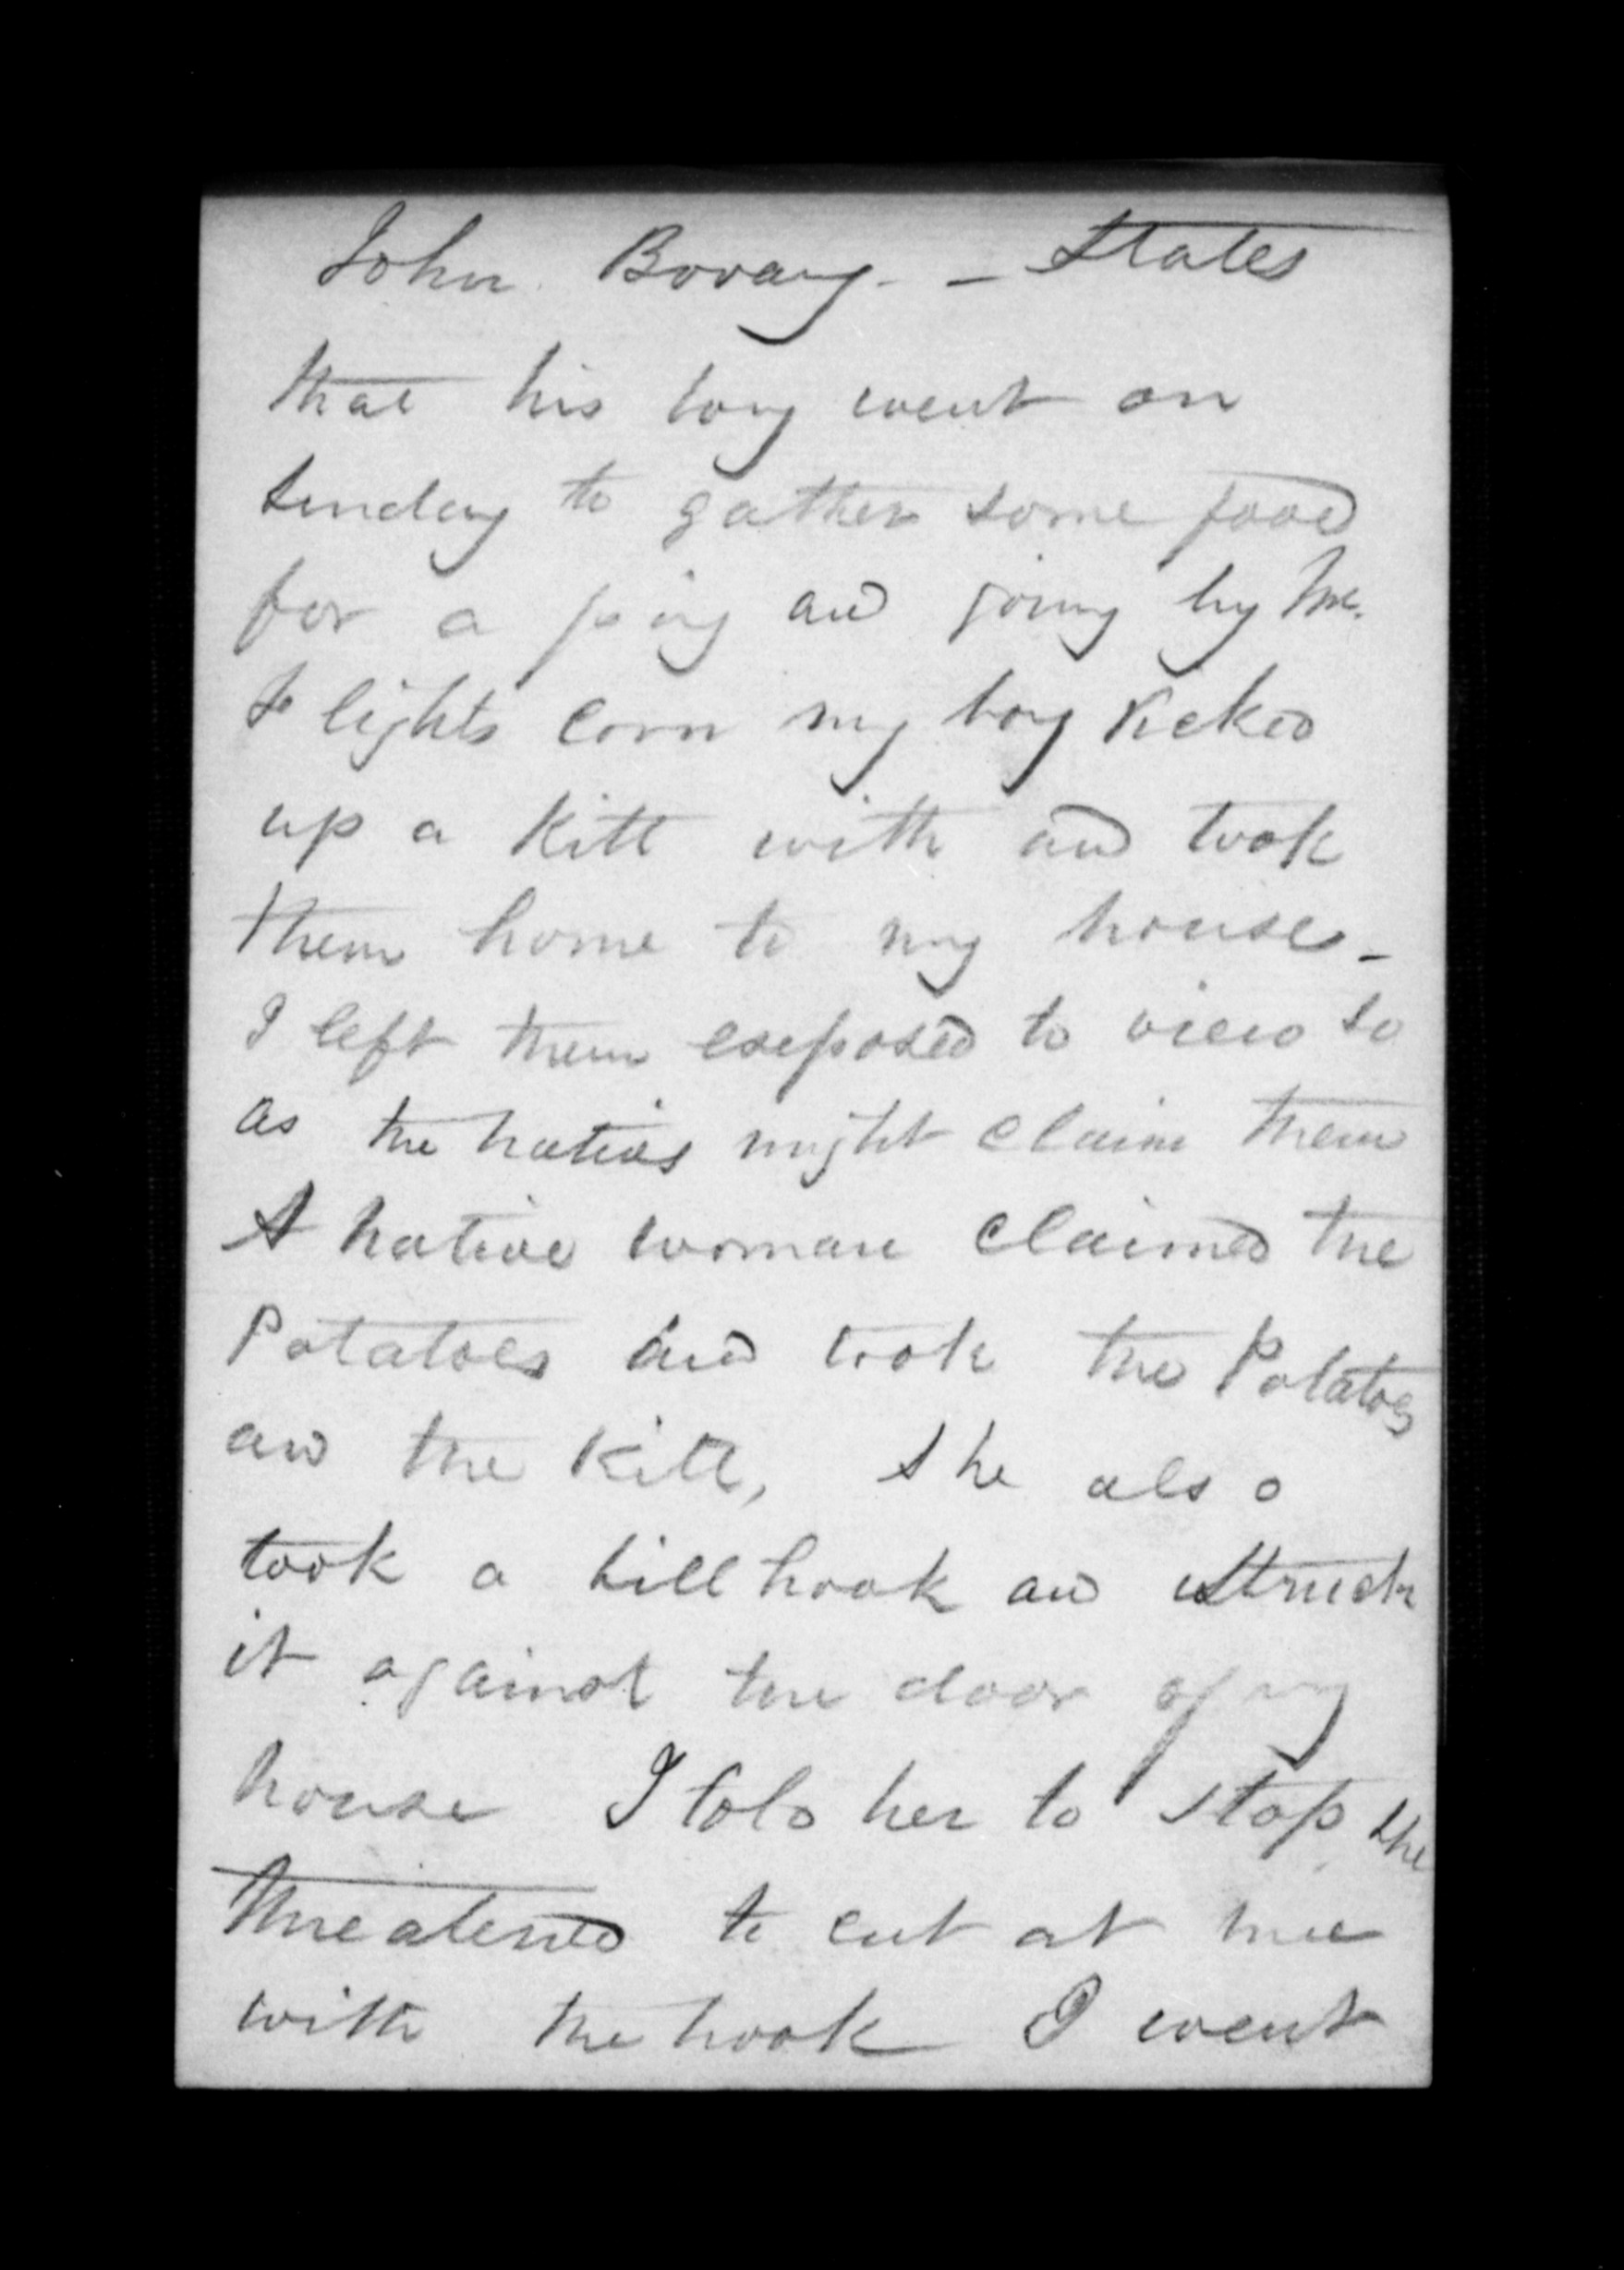 John Bovary - States
that his boy went on
Sunday to gather some food
for a pig and going by Mr.
Slights corn my boy kicked
up a kitt with and took
them home to my house -
I left them exposed to view so
as the natives might claim them
A native woman claimed the
Potatoes and took the Potatoes
and the kitt, She also
took a billhook and struck
it against the door of my
house I told her to stop she
threatened to cut at me
with the hook I went